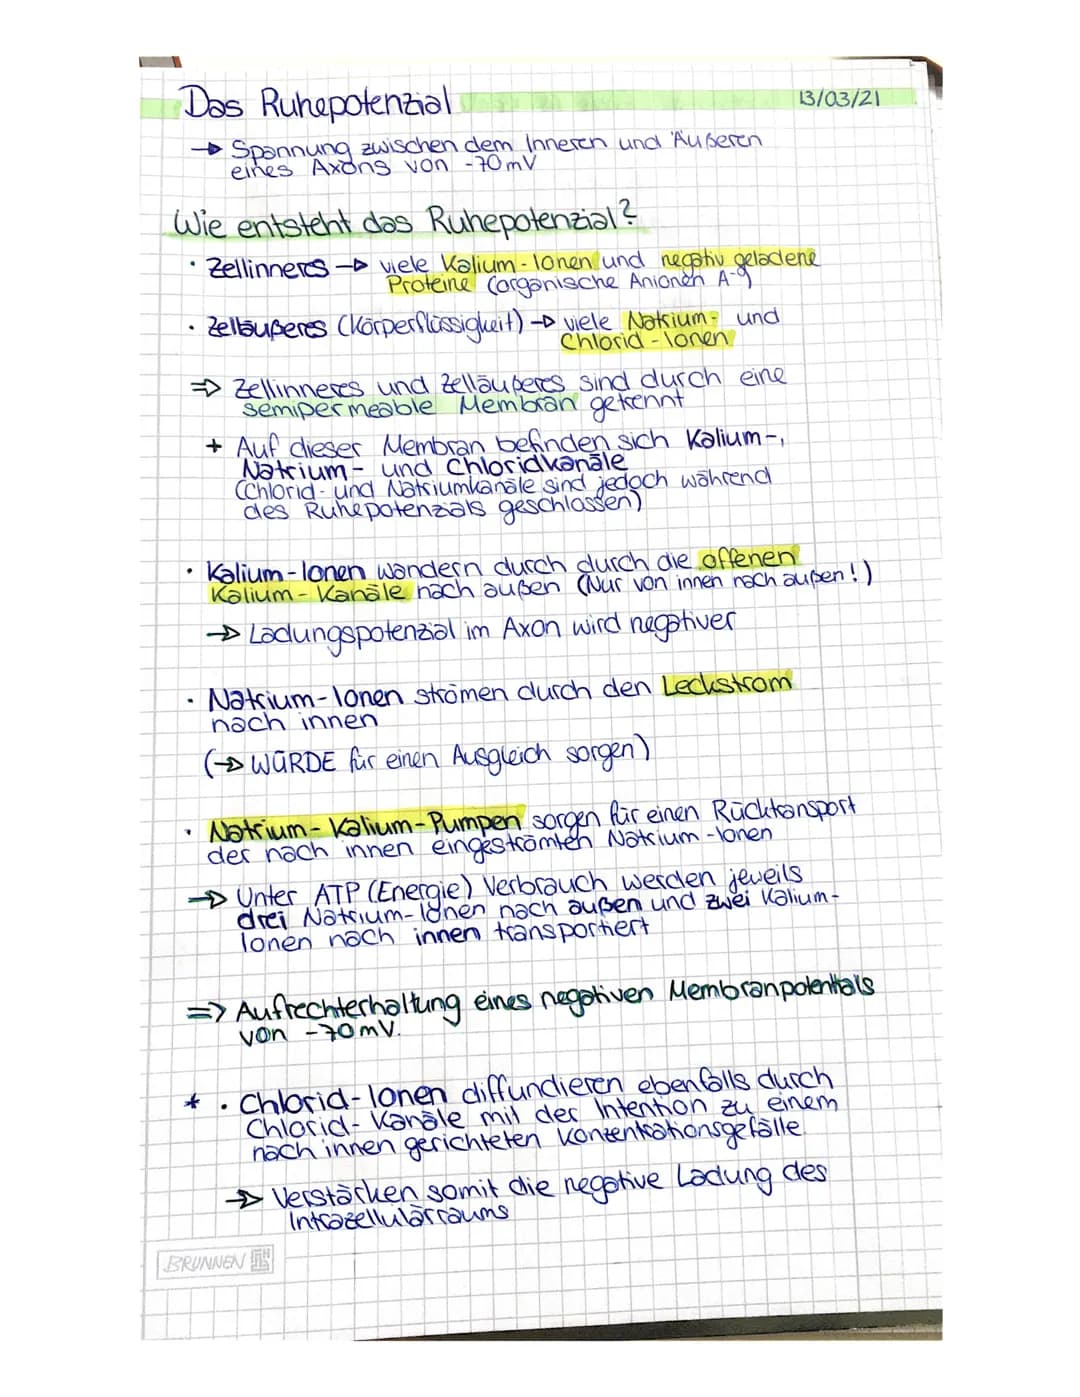 Das Ruhepotenzial 13/03/21
→ Spannung zwischen dem Inneren und Äußeren
eines Axons von -70mV
Wie entsteht das Ruhepotenzial?
· Zellinneres → viele Kalium-Ionen und negativ geladene
Proteine (organische Anionen A-)
· Zelläußeres (Körperflüssigkeit) → viele Natrium- und
Chlorid-Ionen
⇒ Zellinneres und Zelläußeres sind durch eine
semipermeable Membran getrennt
+ Auf dieser Membran befinden sich Kalium-,
Natrium- und Chloridkanäle
(Chlorid- und Natriumkanäle sind jedoch während
des Ruhepotenzials geschlossen)
· Kalium-Ionen wandern durch durch die offenen
Kalium-Kanäle nach außen (Nur von innen nach außen!)
→ Ladungspotenzial im Axon wird negativer
· Natrium-Ionen strömen durch den Leckstrom
nach innen
(→ WÜRDE für einen Ausgleich sorgen)
· Natrium-Kalium-Pumpen sorgen für einen Rücktransport
der nach innen eingeströmten Natrium-Ionen
→ Unter ATP (Energie) Verbrauch werden jeweils
drei Natrium-Ionen nach außen und zwei Kalium-
Ionen nach innen transportiert
=> Aufrechterhaltung eines negativen Membranpotentials
von -70mV.
* · Chlorid-Ionen diffundieren ebenfalls durch
Chlorid-Kanäle mit der Intention zu einem
nach innen gerichteten Konzentrationsgefälle
→ Verstärken somit die negative Ladung des
Intrazellulärraums
BRUNNEN